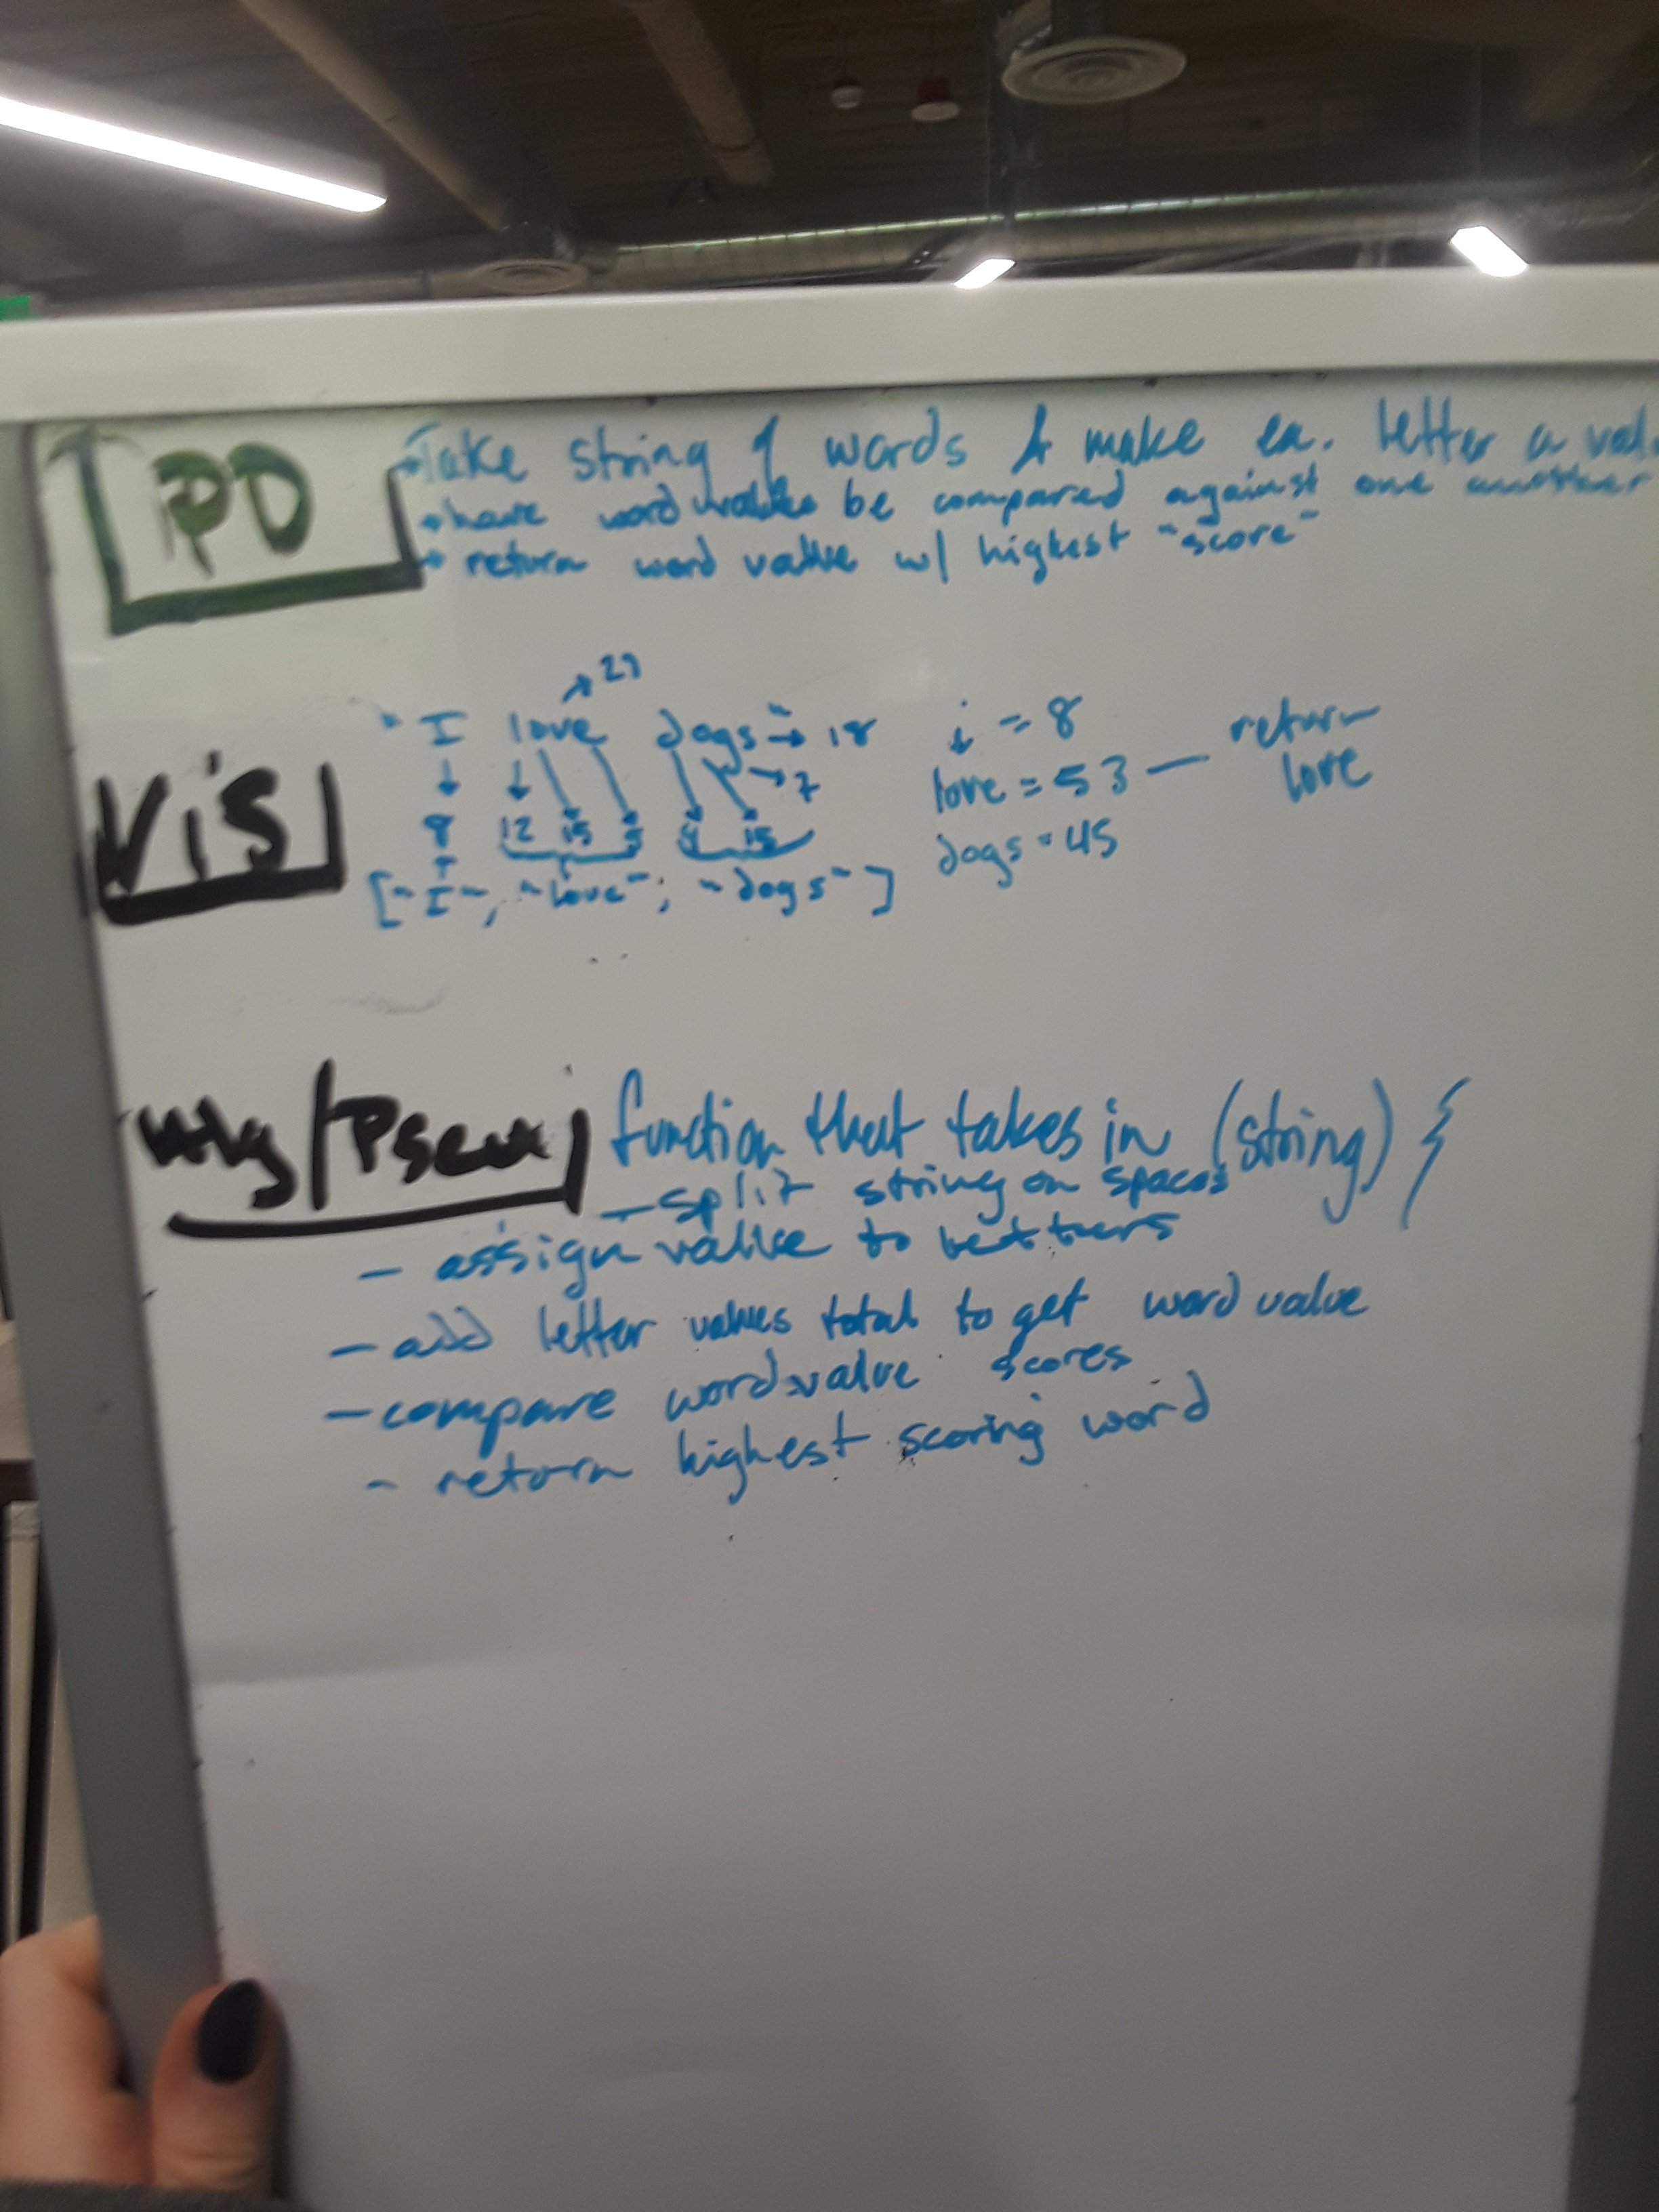 PD
Take string of words & make ea. letter a val
have word values be compared against one another
return word value w/ highest "score"
Vis
21
"I love dogs" → 18
→ 7
8 12 15 5 4 15
["I", "love", "dogs"]
i = 8
love = 53 — return love
dogs = 45
/Pseu
function that takes in (string) {
- split string on spaces
- assign value to letters
- add letter values total to get word value
- compare word value scores
- return highest scoring word